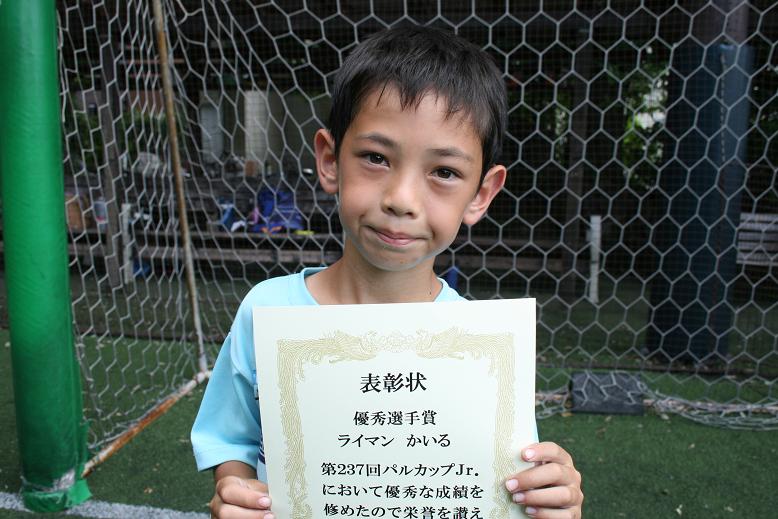 表彰状
優秀選手賞
ライマン かいる
第237回パルカップJr.
において優秀な成績を
修めたので栄誉を讃え